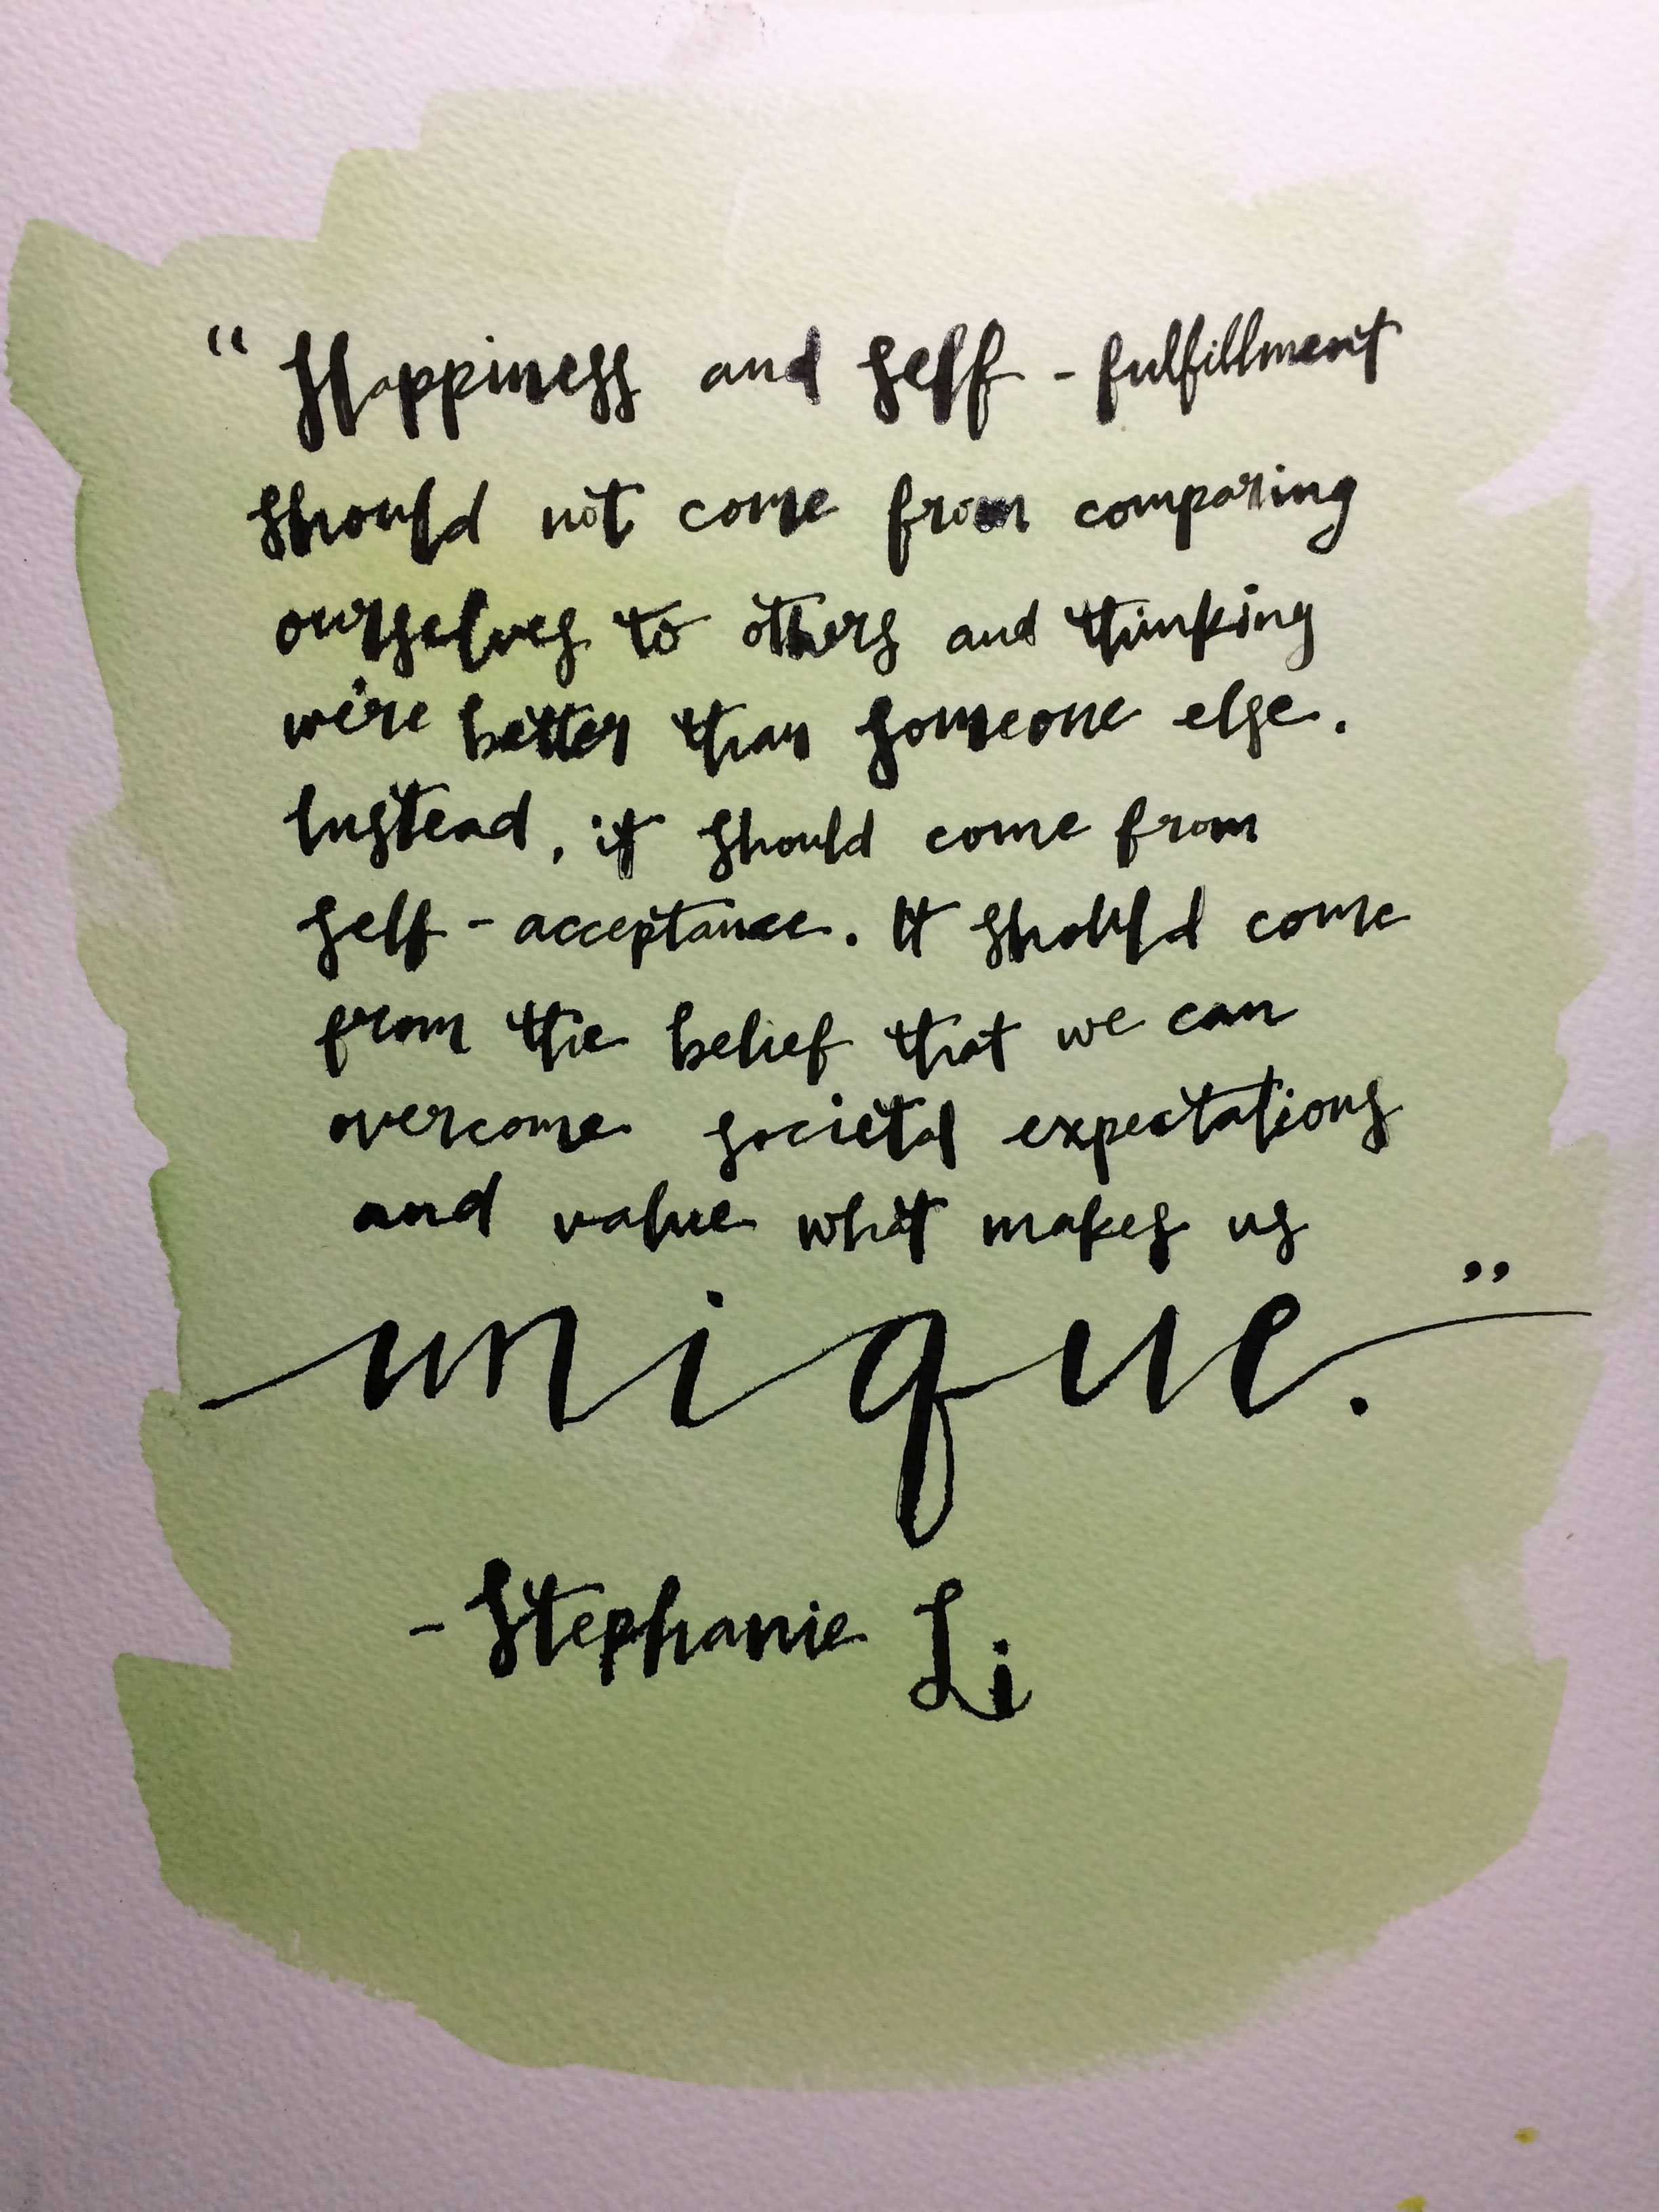 “Happiness and self-fulfillment
should not come from comparing
ourselves to others and thinking
we're better than someone else.
Instead, it should come from
self-acceptance. It should come
from the belief that we can
overcome societal expectations
and value what makes us
unique.”
- Stephanie Li